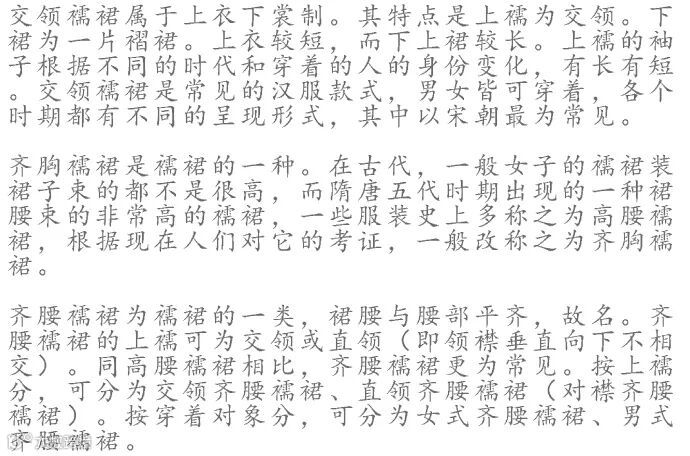 交领襦裙属于上衣下裳制。其特点是上襦为交领。下
裙为一片褶裙。上衣较短，而下上裙较长。上襦的袖
子根据不同的时代和穿着的人的身份变化，有长有短
。交领襦裙是常见的汉服款式，男女皆可穿着，各个
时期都有不同的呈现形式，其中以宋朝最为常见。
齐胸襦裙是襦裙的一种。在古代，一般女子的襦裙装
裙子束的都不是很高，而隋唐五代时期出现的一种裙
腰束的非常高的襦裙，一些服装史上多称之为高腰襦
裙，根据现在人们对它的考证，一般改称之为齐胸襦
裙。
齐腰襦裙为襦裙的一类，裙腰与腰部平齐，故名。齐
腰襦裙的上襦可为交领或直领（即领襟垂直向下不相
交）。同高腰襦裙相比，齐腰襦裙更为常见。按上襦
分，可分为交领齐腰襦裙、直领齐腰襦裙（对襟齐腰
襦裙）。按穿着对象分，可分为女式齐腰襦裙、男式
齐腰襦裙。